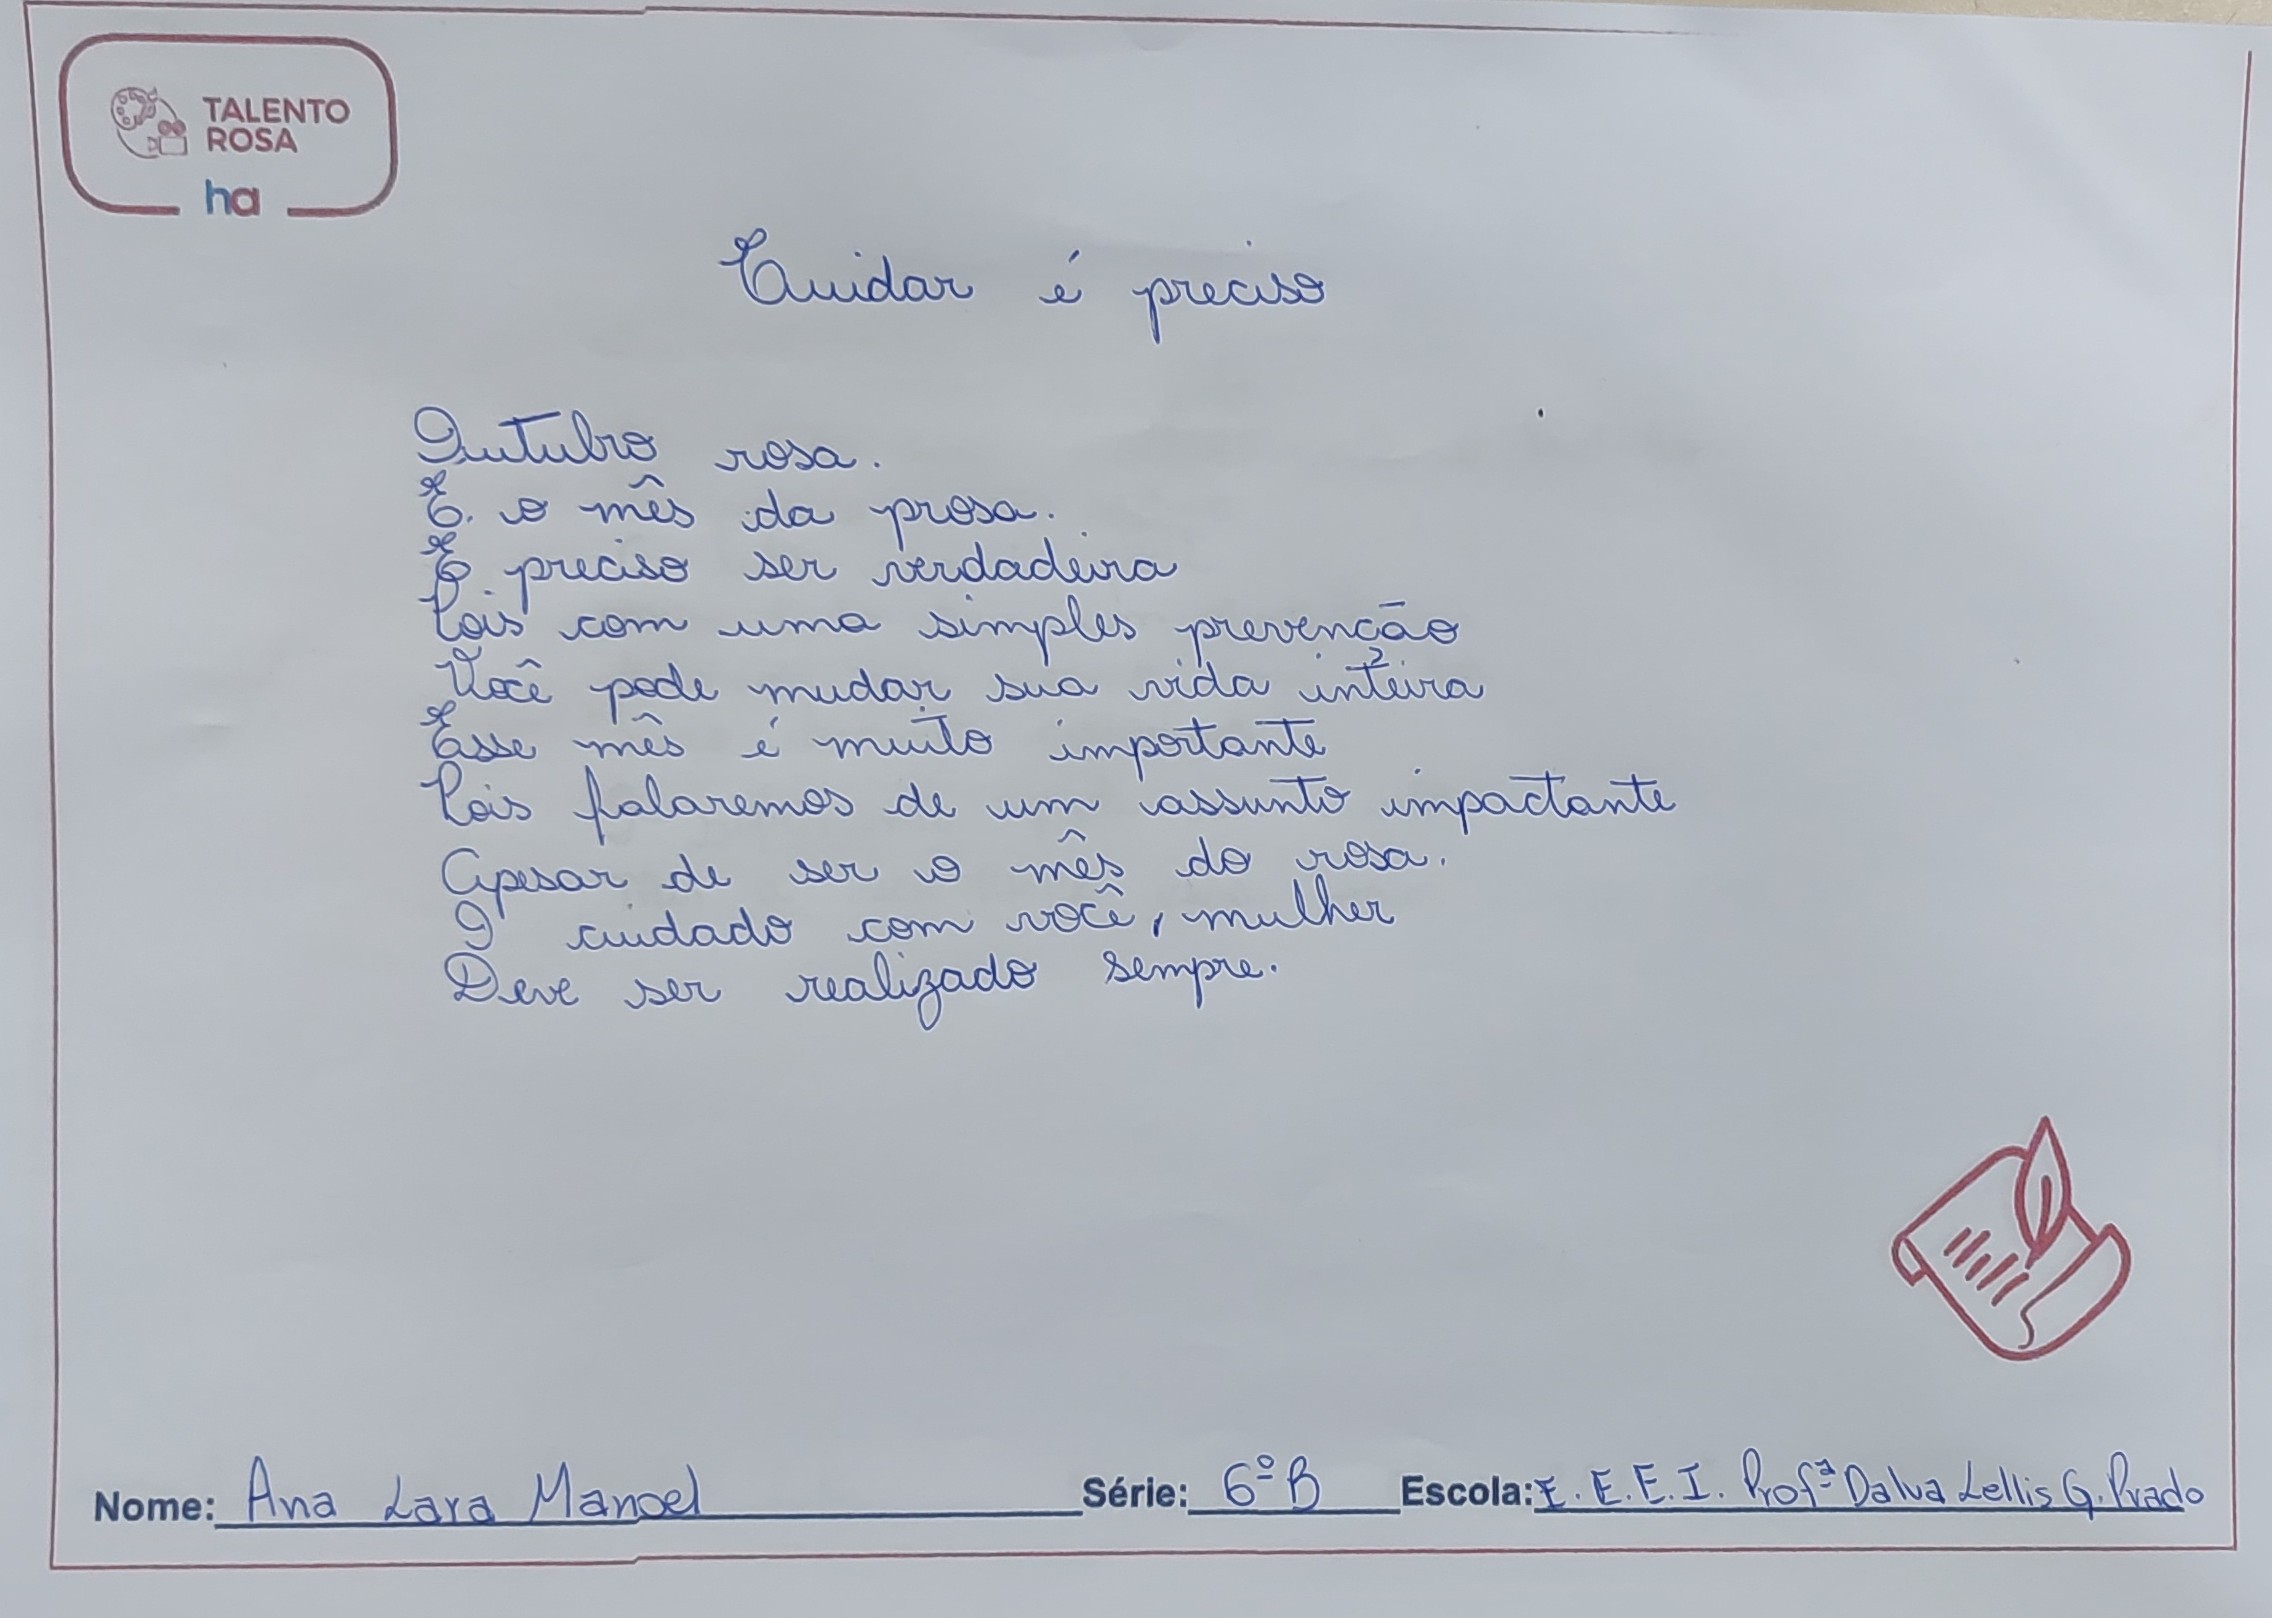 TALENTO
ROSA
ha
Cuidar é preciso
Outubro rosa.
É o mês da prosa.
É preciso ser verdadeira
Pois com uma simples prevenção
Você pode mudar sua vida inteira
Esse mês é muito importante
Pois falaremos de um assunto impactante
Apesar de ser o mês do rosa.
O cuidado com você, mulher
Deve ser realizado sempre.
Nome: Ana Lara Manoel Série: 6º B Escola: E.E.E.I. Profª Dalva Lellis G. Prado